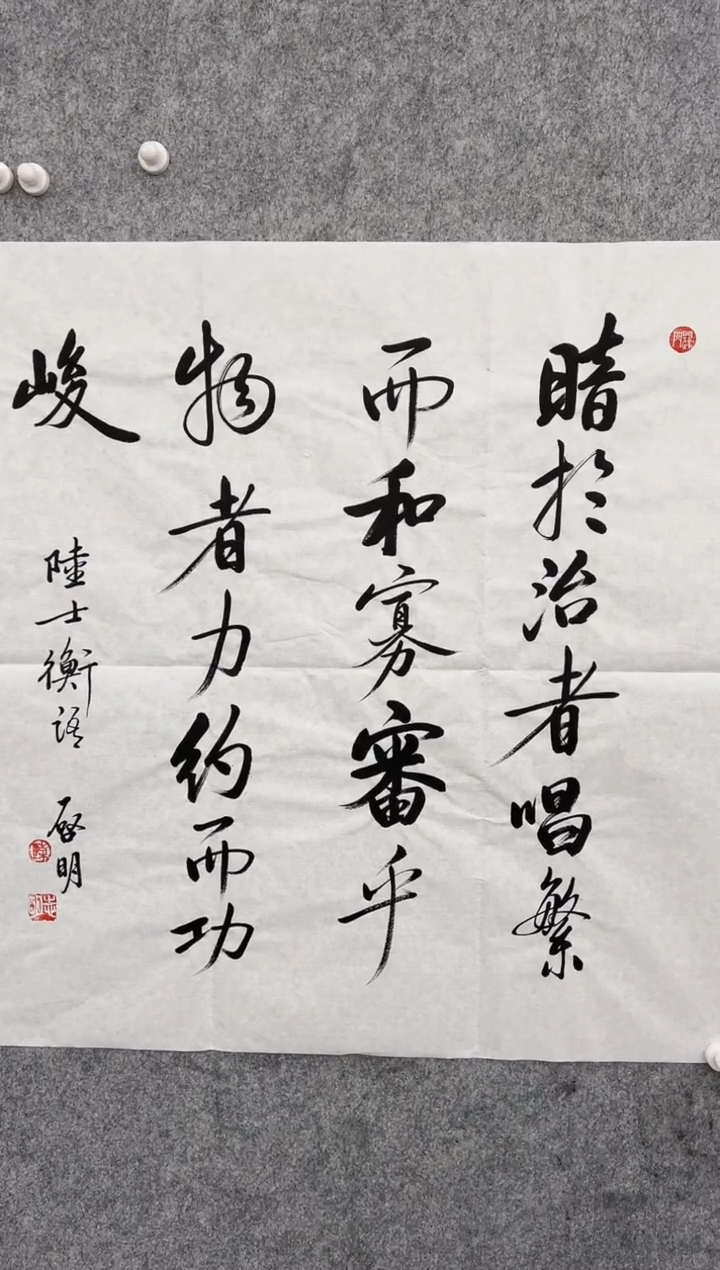 暗於治者唱繁
而和寡審乎
物者力約而功
峻
陸士衡語
啓明